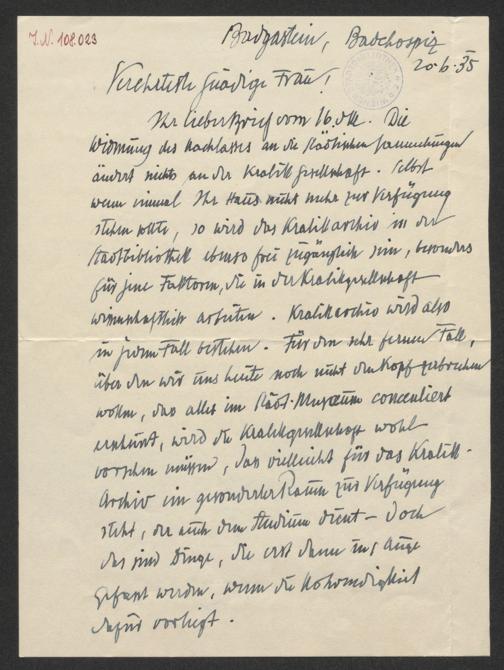 J.N. 108.023
Badgastein, Badehospiz
20.6.35
Verehrteste gnädige Frau!
Ihr lieber Brief vom 16. dM. Die
Widmung des Nachlasses an die städtischen Sammlungen
ändert nichts an der Kralik Gesellschaft. Selbst
wenn einmal Ihr Haus nicht mehr zur Verfügung
stehen sollte, so wird das Kralikarchiv in der
Stadtbibliothek ebenso frei zugänglich sein, besonders
für jene Faktoren, die in der Kralikgesellschaft
wissenschaftlich arbeiten. Kralikarchiv wird also
in jedem Fall bestehen. Für den sehr fernen Fall,
über den wir uns heute noch nicht den Kopf zerbrechen
wollen, das alles im städt. Museum concentriert
erscheint, wird die Kralikgesellschaft wohl
vorsehen müssen, dass vielleicht für das Kralik-
Archiv ein gesonderter Raum zur Verfügung
steht, der auch dem Studium dient – doch
das sind Dinge, die erst dann ins Auge
gefasst werden, wenn die Notwendigkeit
dafür vorliegt.